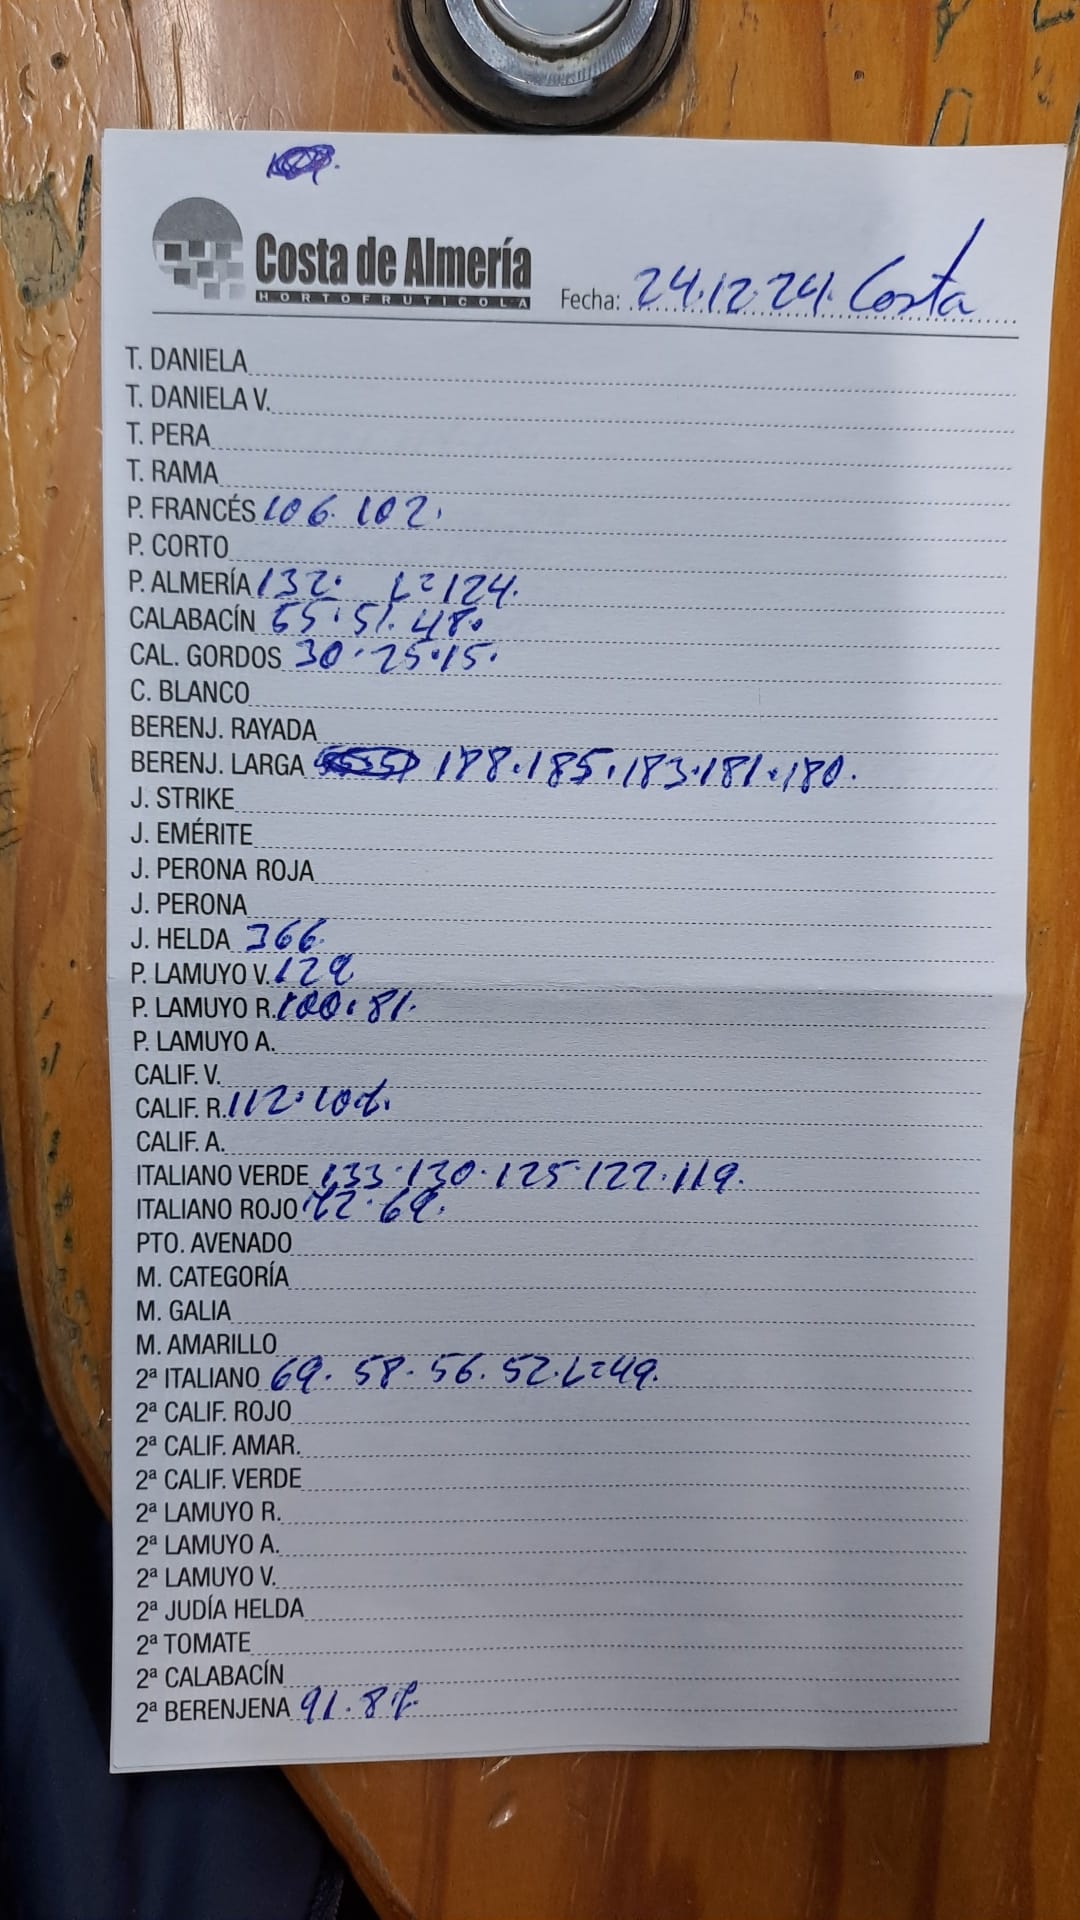 Costa de Almería
HORTOFRUTICOLA
Fecha: 24.12.24. Costa
T. DANIELA
T. DANIELA V.
T. PERA
T. RAMA
P. FRANCÉS 106. 102.
P. CORTO
P. ALMERÍA 132. L=124.
CALABACÍN 65. 51. 48.
CAL. GORDOS 30. 25. 15.
C. BLANCO
BERENJ. RAYADA
BERENJ. LARGA 188. 185. 183. 181. 180.
J. STRIKE
J. EMÉRITE
J. PERONA ROJA
J. PERONA
J. HELDA 366.
P. LAMUYO V. 129
P. LAMUYO R. 100. 81.
P. LAMUYO A.
CALIF. V.
CALIF. R. 112.
CALIF. A.
ITALIANO VERDE 133. 130. 125. 122. 119.
ITALIANO ROJO 72. 69.
PTO. AVENADO
M. CATEGORÍA
M. GALIA
M. AMARILLO
2ª ITALIANO 69. 58. 56. 52. L=49.
2ª CALIF. ROJO
2ª CALIF. AMAR.
2ª CALIF. VERDE
2ª LAMUYO R.
2ª LAMUYO A.
2ª LAMUYO V.
2ª JUDÍA HELDA
2ª TOMATE
2ª CALABACÍN
2ª BERENJENA 91.